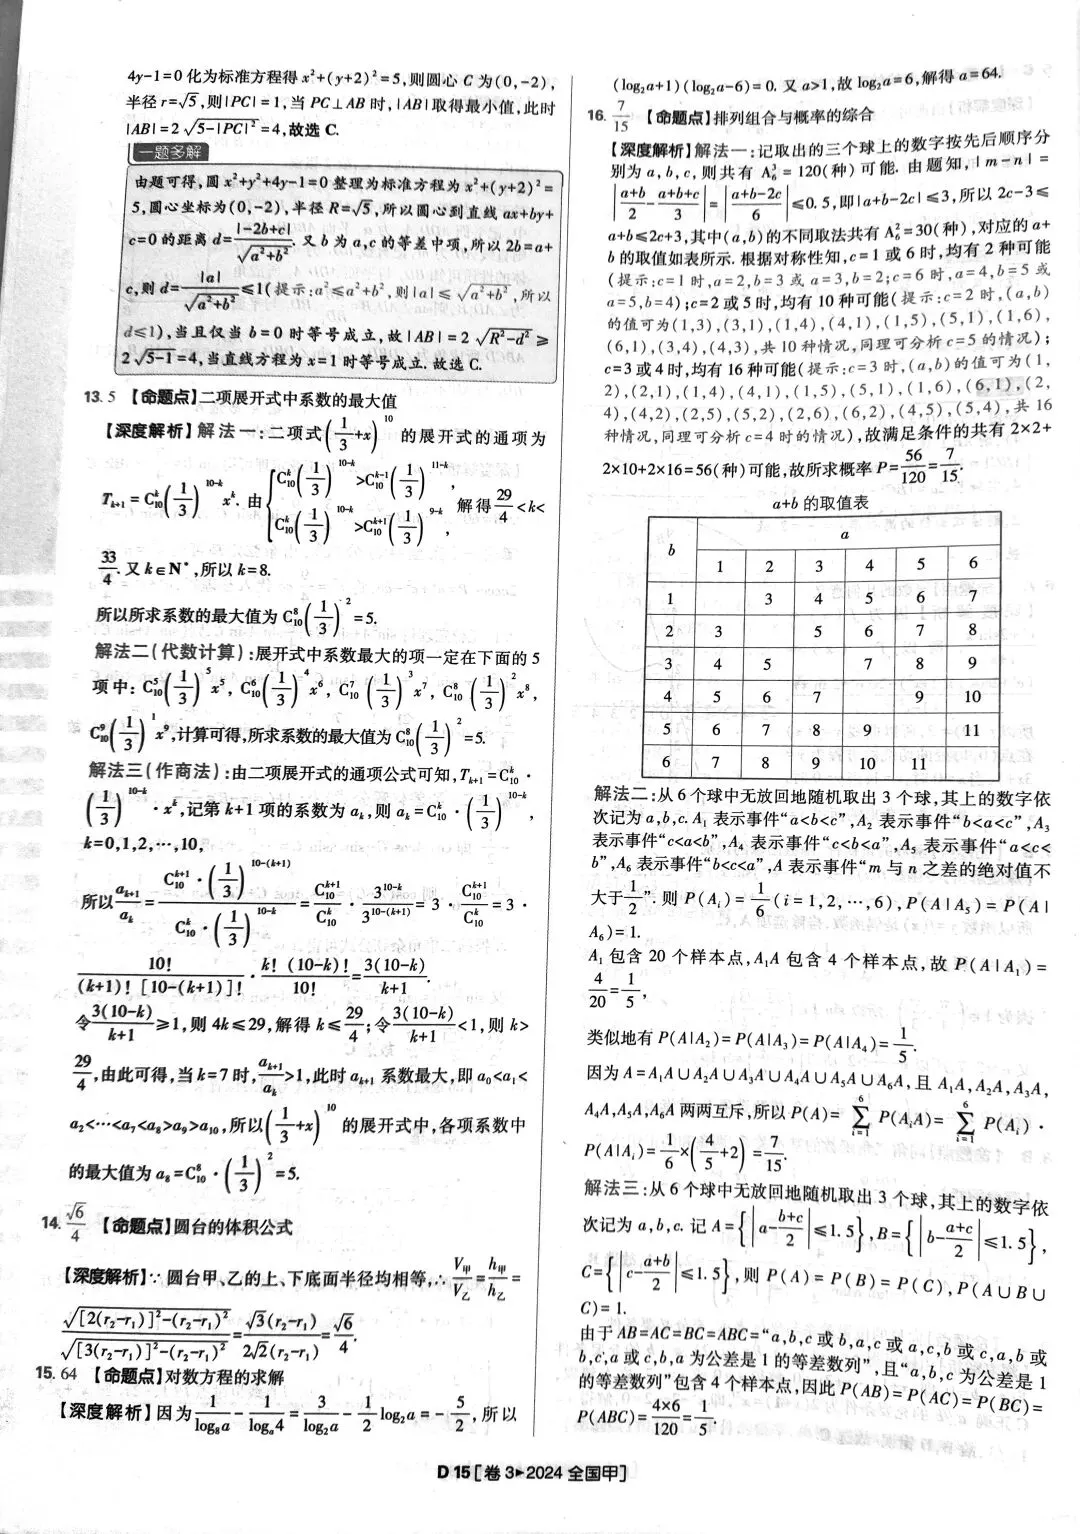 4y-1=0 化为标准方程得 x²+(y+2)²=5,则圆心 C 为(0,-2),
半径 r=√5,则|PC|=1,当 PC⊥AB 时,|AB|取得最小值,此时
|AB|=2√(5-|PC|²)=4,故选 C.
一题多解
由题可得,圆 x²+y²+4y-1=0 整理为标准方程为 x²+(y+2)²=
5,圆心坐标为(0,-2),半径 R=√5,所以圆心到直线 ax+by+
c=0 的距离 d=|-2b+c|/√(a²+b²). 又 b 为 a,c 的等差中项,所以 2b=a+
c,则 d=|a|/√(a²+b²)≤1(提示:a²≤a²+b²,则|a|≤√(a²+b²),所以
d≤1),当且仅当 b=0 时等号成立,故|AB|=2√(R²-d²)≥
2√(5-1)=4,当直线方程为 x=1 时等号成立. 故选 C.
13. 5 【命题点】二项展开式中系数的最大值
【深度解析】解法一:二项式(1/3+x)¹⁰ 的展开式的通项为
Tₖ₊₁=C₁₀ᵏ(1/3)¹⁰⁻ᵏxᵏ. 由{C₁₀ᵏ(1/3)¹⁰⁻ᵏ>C₁₀ᵏ⁻¹(1/3)¹¹⁻ᵏ, C₁₀ᵏ(1/3)¹⁰⁻ᵏ>C₁₀ᵏ⁺¹(1/3)⁹⁻ᵏ, 解得 29/4<k<
33/4. 又 k∈N*,所以 k=8.
所以所求系数的最大值为 C₁₀⁸(1/3)²=5.
解法二(代数计算):展开式中系数最大的项一定在下面的 5
项中: C₁₀⁵(1/3)⁵x⁵, C₁₀⁶(1/3)⁴x⁶, C₁₀⁷(1/3)³x⁷, C₁₀⁸(1/3)²x⁸,
C₁₀⁹(1/3)¹x⁹,计算可得,所求系数的最大值为 C₁₀⁸(1/3)²=5.
解法三(作商法):由二项展开式的通项公式可知,Tₖ₊₁=C₁₀ᵏ·
(1/3)¹⁰⁻ᵏ·xᵏ,记第 k+1 项的系数为 aₖ,则 aₖ=C₁₀ᵏ·(1/3)¹⁰⁻ᵏ,
k=0,1,2,…,10,
所以 aₖ₊₁/aₖ=[C₁₀ᵏ⁺¹·(1/3)¹⁰⁻⁽ᵏ⁺¹⁾]/[C₁₀ᵏ·(1/3)¹⁰⁻ᵏ]=C₁₀ᵏ⁺¹/C₁₀ᵏ·3¹⁰⁻ᵏ/3¹⁰⁻⁽ᵏ⁺¹⁾=3·C₁₀ᵏ⁺¹/C₁₀ᵏ=3·
10!/((k+1)![10-(k+1)]!)·k!(10-k)!/10!=3(10-k)/(k+1).
令3(10-k)/(k+1)≥1,则 4k≤29,解得 k≤29/4;令3(10-k)/(k+1)<1,则 k>
29/4,由此可得,当 k=7 时,aₖ₊₁/aₖ>1,此时 aₖ₊₁ 系数最大,即 a₀<a₁<
a₂<…<a₇<a₈>a₉>a₁₀,所以(1/3+x)¹⁰ 的展开式中,各项系数中
的最大值为 a₈=C₁₀⁸·(1/3)²=5.
14. √6/4 【命题点】圆台的体积公式
【深度解析】∵圆台甲、乙的上、下底面半径均相等,∴V甲/V乙=h甲/h乙=
√([2(r₂-r₁)]²-(r₂-r₁)²)/√([3(r₂-r₁)]²-(r₂-r₁)²)=√3(r₂-r₁)/(2√2(r₂-r₁))=√6/4.
15. 64 【命题点】对数方程的求解
【深度解析】因为1/log₈a-1/logₐ4=3/log₂a-1/2log₂a=-5/2,所以
(log₂a+1)(log₂a-6)=0. 又 a>1,故 log₂a=6,解得 a=64.
16. 7/15 【命题点】排列组合与概率的综合
【深度解析】解法一:记取出的三个球上的数字按先后顺序分
别为 a,b,c,则共有 A₆³=120(种)可能. 由题知,|m-n|=
|(a+b)/2-(a+b+c)/3|=|(a+b-2c)/6|≤0.5,即|a+b-2c|≤3,所以 2c-3≤
a+b≤2c+3,其中(a,b)的不同取法共有 A₆²=30(种),对应的 a+
b 的取值如表所示. 根据对称性知,c=1 或 6 时,均有 2 种可能
(提示:c=1 时,a=2,b=3 或 a=3,b=2;c=6 时,a=4,b=5 或
a=5,b=4);c=2 或 5 时,均有 10 种可能(提示:c=2 时,(a,b)
的值可为(1,3),(3,1),(1,4),(4,1),(1,5),(5,1),(1,6),
(6,1),(3,4),(4,3),共 10 种情况,同理可分析 c=5 的情况);
c=3 或 4 时,均有 16 种可能(提示:c=3 时,(a,b)的值可为(1,
2),(2,1),(1,4),(4,1),(1,5),(5,1),(1,6),(6,1),(2,
4),(4,2),(2,5),(5,2),(2,6),(6,2),(4,5),(5,4),共 16
种情况,同理可分析 c=4 时的情况),故满足条件的共有 2×2+
2×10+2×16=56(种)可能,故所求概率 P=56/120=7/15.
a+b 的取值表
b a
1 2 3 4 5 6
1 3 4 5 6 7
2 3 5 6 7 8
3 4 5 7 8 9
4 5 6 7 9 10
5 6 7 8 9 11
6 7 8 9 10 11
解法二:从 6 个球中无放回地随机取出 3 个球,其上的数字依
次记为 a,b,c. A₁ 表示事件“a<b<c”,A₂ 表示事件“b<a<c”,A₃
表示事件“c<a<b”,A₄ 表示事件“c<b<a”,A₅ 表示事件“a<c<
b”,A₆ 表示事件“b<c<a”,A 表示事件“m 与 n 之差的绝对值不
大于1/2”. 则 P(Aᵢ)=1/6(i=1,2,…,6),P(A|A₅)=P(A|
A₆)=1.
A₁ 包含 20 个样本点,A₁A 包含 4 个样本点,故 P(A|A₁)=
4/20=1/5,
类似地有 P(A|A₂)=P(A|A₃)=P(A|A₄)=1/5.
因为 A=A₁A∪A₂A∪A₃A∪A₄A∪A₅A∪A₆A,且 A₁A,A₂A,A₃A,
A₄A,A₅A,A₆A 两两互斥,所以 P(A)=∑⁶ᵢ₌₁P(AᵢA)=∑⁶ᵢ₌₁P(Aᵢ)·
P(A|Aᵢ)=1/6×(4/5+2)=7/15.
解法三:从 6 个球中无放回地随机取出 3 个球,其上的数字依
次记为 a,b,c. 记 A={|a-(b+c)/2|≤1.5},B={|b-(a+c)/2|≤1.5},
C={|c-(a+b)/2|≤1.5},则 P(A)=P(B)=P(C),P(A∪B∪
C)=1.
由于 AB=AC=BC=ABC=“a,b,c 或 b,a,c 或 a,c,b 或 c,a,b 或
b,c,a 或 c,b,a 为公差是 1 的等差数列”,且“a,b,c 为公差是 1
的等差数列”包含 4 个样本点,因此 P(AB)=P(AC)=P(BC)=
P(ABC)=4×6/120=1/5.
D 15[卷 3▸2024 全国甲]